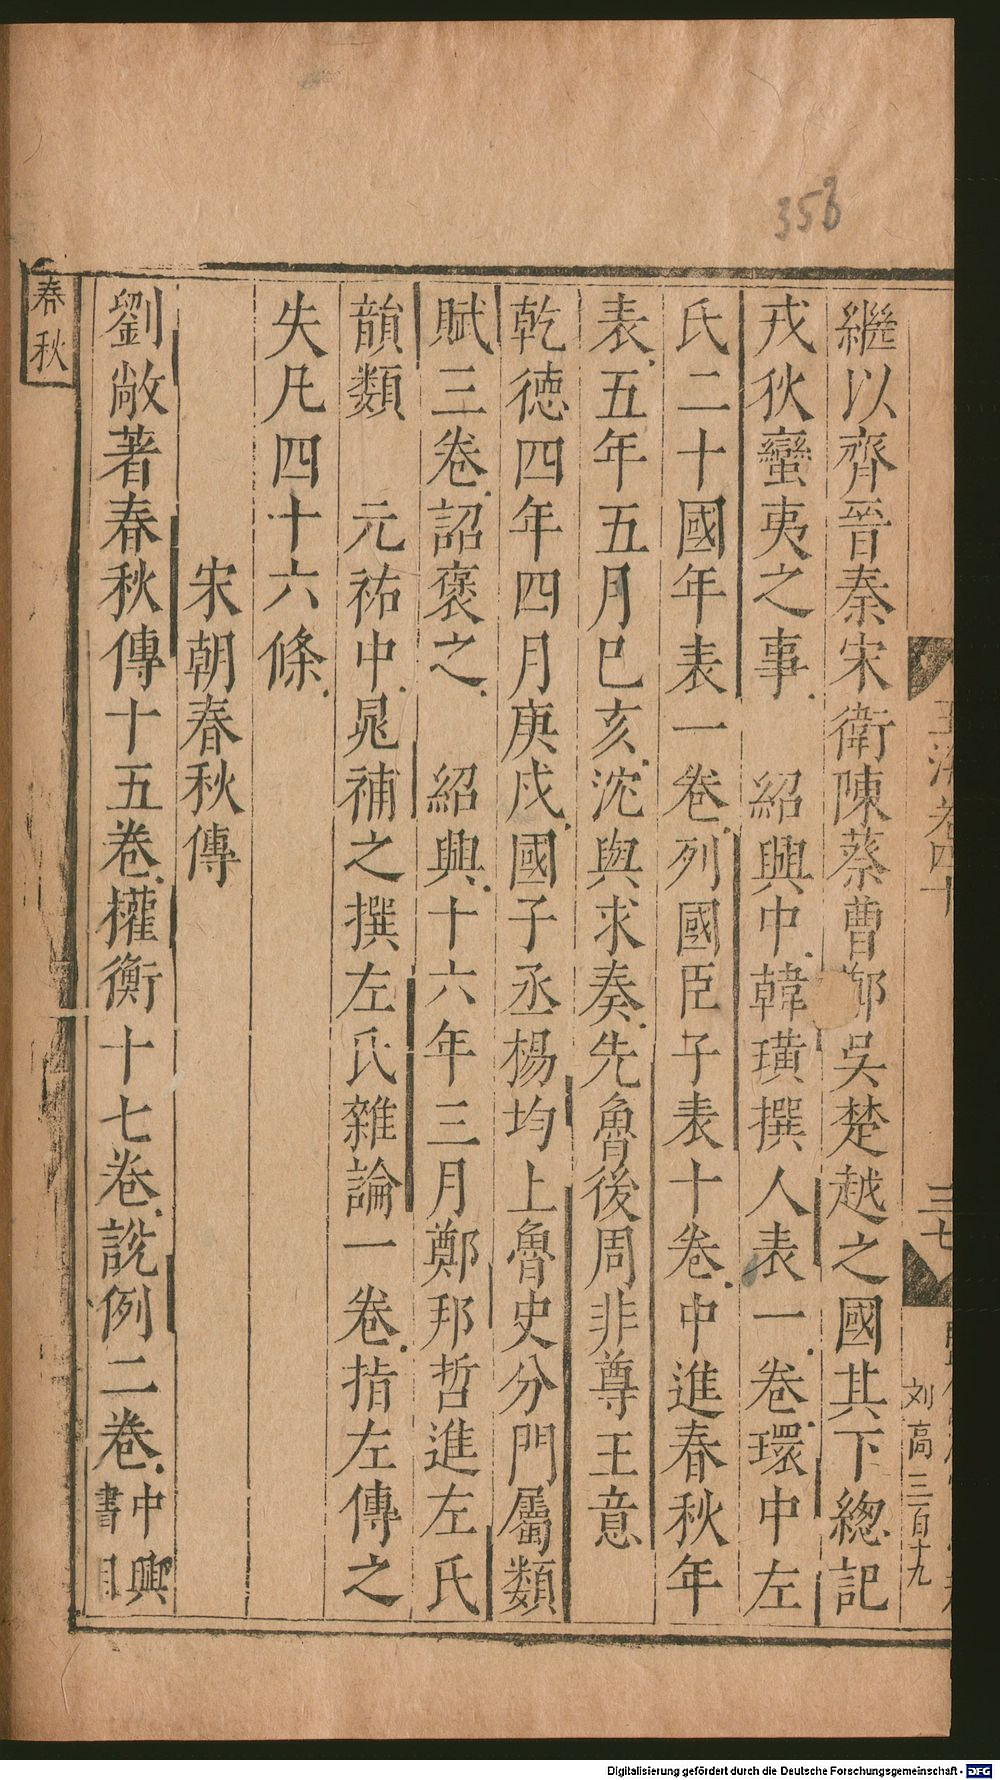 353
繼以齊晉秦宋衛陳蔡曹鄭吳楚越之國其下總記
戎狄蠻夷之事 紹興中韓璜撰人表一卷環中左
氏二十國年表一卷列國臣子表十卷中進春秋年
表五年五月巳亥沈與求奏先魯後周非尊王意
乾德四年四月庚戌國子丞楊均上魯史分門屬類
賦三卷詔褒之 紹興十六年三月鄭邦哲進左氏
韻類 元祐中晁補之撰左氏雜論一卷指左傳之
失凡四十六條
宋朝春秋傳
劉敞著春秋傳十五卷權衡十七卷說例二卷中興
書目
春秋
玉海卷四十
三七
刘高三百十九
Digitalisierung gefördert durch die Deutsche Forschungsgemeinschaft - DFG